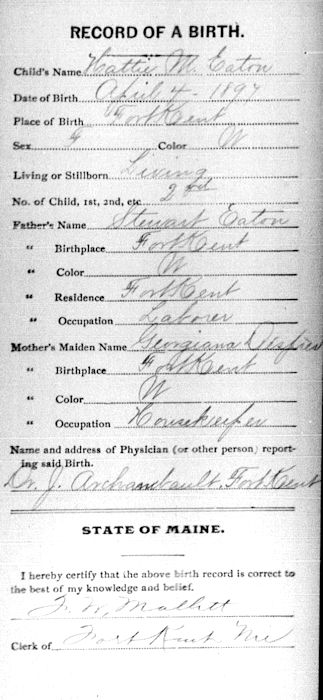 RECORD OF A BIRTH.
Child's Name Hattie M. Eaton
Date of Birth April 4 - 1897
Place of Birth Fort Kent
Sex F Color W
Living or Stillborn Living
No. of Child, 1st, 2nd, etc. 2nd
Father's Name Stewart Eaton
" Birthplace Fort Kent
" Color W
" Residence Fort Kent
" Occupation Laborer
Mother's Maiden Name Georgiana
" Birthplace Fort Kent
" Color W
" Occupation Housekeeper
Name and address of Physician (or other person) report-
ing said Birth.
Dr. J. Archambault, Fort Kent
STATE OF MAINE.
I hereby certify that the above birth record is correct to
the best of my knowledge and belief.
Clerk of Fort Kent Me